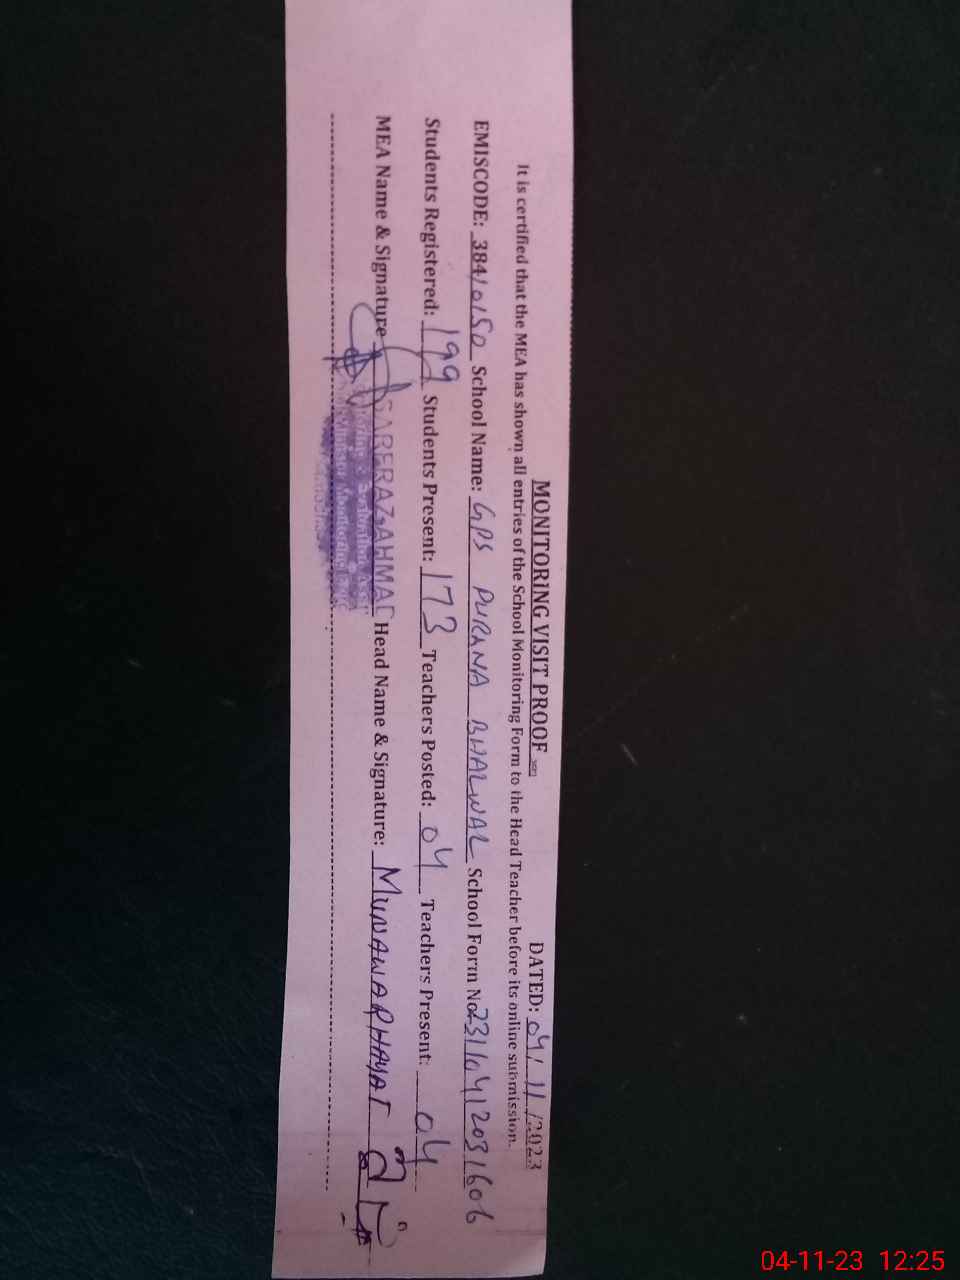 MONITORING VISIT PROOF DATED: 04/11/2023
It is certified that the MEA has shown all entries of the School Monitoring Form to the Head Teacher before its online submission.
EMISCODE: 38410150 School Name: GPS PURANA BHALWAL School Form No. 23110412031606
Students Registered: 199 Students Present: 173 Teachers Posted: 04 Teachers Present: 04
MEA Name & Signature SARFRAZ AHMAD Head Name & Signature: MUNAWAR HAYAT
04-11-23 12:25